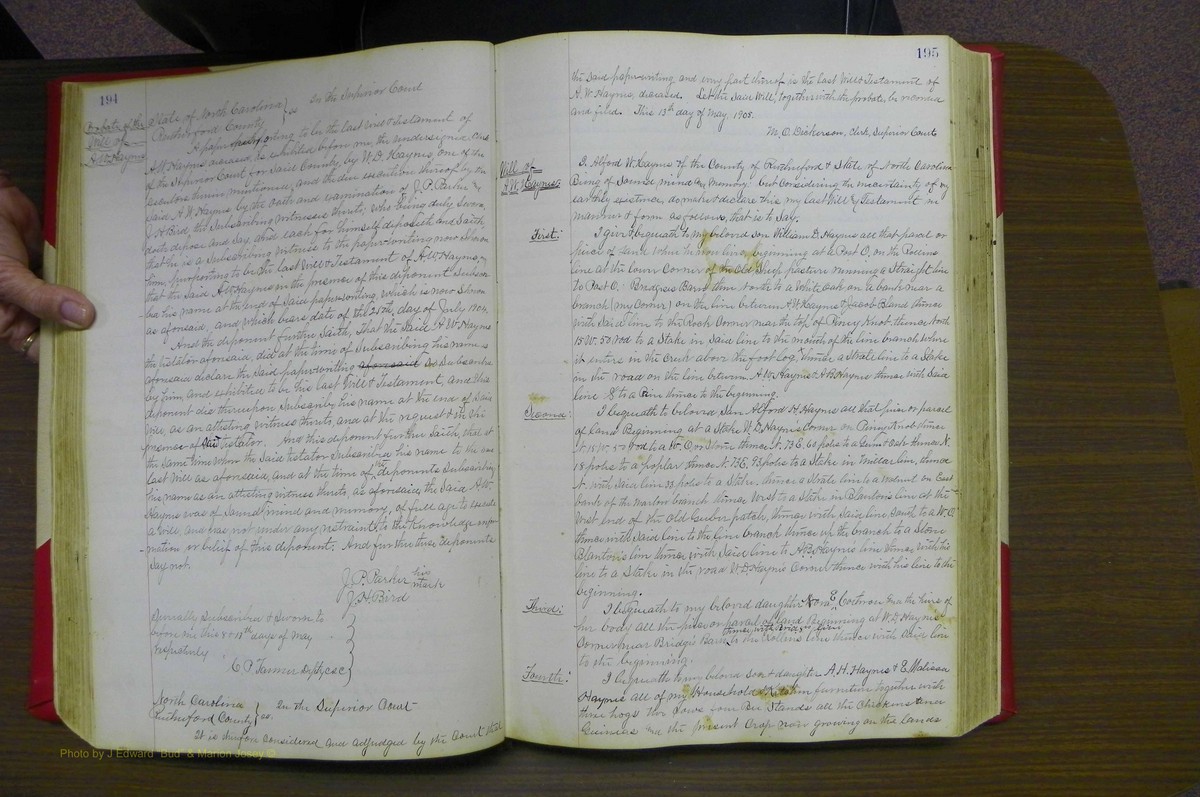 194
Probate of the
Will of
A.W. Haynes
State of North Carolina } ss In the Superior Court
Rutherford County
A paper purporting to be the last will & testament of
A W Haynes deceased is exhibited before me, the undersigned, Clerk
of the Superior Court for said County, by W. D. Haynes, one of the
executors therein mentioned, and the due execution thereof by the
said A. W. Haynes by the oath and examination of J. P. Parker &
J. H. Bird the Subscribing witnesses thereto; who being duly sworn,
doth depose and say, and each for himself deposeth and saith,
that he is a Subscribing witness to the paper-writing now shown
him, purporting to be the last Will & Testament of A W Haynes,
that the said A W Haynes in the presence of this deponent Subscri-
-bed his name at the end of said paper-writing, which is now shown
as aforesaid, and which bears date of the 25th, day of July 1904.
And the deponent further saith, that the said A W Haynes
the testator aforesaid, did at the time of subscribing his name as
aforesaid declare the said paper-writing aforesaid so subscribed
by him, and exhibited to be his last Will & Testament, and this
deponent did thereupon subscribe his name at the end of said
Will, as an attesting witness thereto, and at the request & in the
presence of said testator. And this deponent further saith, that at
the same time when the said testator subscribed his name to the said
last will as aforesaid, and at the time of the deponents subscribing
his name as an attesting witness thereto, as aforesaid, the said A.W.
Haynes was of sound mind and memory, of full age to execute
a will, and was not under any restraint, to the knowledge infor-
-mation or belief of this deponent: And further these deponents
say not.
J. P. Parker his mark
J. H. Bird
Severally subscribed & sworn to
before me this 8 & 13th days of May
respectively
C P Tanner Dpty CSC
North Carolina } ss. In the Superior Court
Rutherford County
It is therefore considered and adjudged by the Court that
195
the said paper-writing and every part thereof is the last Will & Testament of
A. W. Haynes, deceased. Let the said Will, together with the probate, be recorded
and filed. This 13th day of May 1905.
M. O. Dickerson, Clerk, Superior Court
Will of
A.W. Haynes:
I, Alford W. Haynes of the County of Rutherford & State of North Carolina
Being of sound mind and memory but considering the uncertainty of my
earthly existence, do make & declare this my last Will & Testament in
manner & form as follows, that is to say.
First: I give & bequeath to my beloved son William D. Haynes all that parcel or
piece of land where he now lives, beginning at a Post O, on the Rollins
line at the lower corner of the Old Sheep pasture running a straight line
to Post O. Bridges Barn then route to a White oak on a bank near a
branch (my Corner) on the line between A W Haynes & Jacob Bland thence
with said line to the Rock Corner near the top of Piney Knot thence North
15 W. 50 rod to a Stake in said line to the mouth of the line branch where
it enters in the Creek above the foot log, thence a strate line to a Stake
in the road on the line between A. W. Haynes & A B Haynes thence with said
line S to a thence to the beginning.
Second: I bequeath to beloved son Alford H. Haynes all that piece or parcel
of land Beginning at a Stake W. D. Haynes Corner on Piney Knob thence
N 15 W. 50 to a W. O or Stone thence N. 73 E. 60 poles to a Oak thence N.
18 poles to a poplar thence N. 73 E. 93 poles to a Stake in Millar line, thence
N. with said line 33 poles to a Stake thence a Strate line to a Walnut on East
bank of the branch thence West to a Stake in Blantons line at the
West end of the Old Guber patch, thence with said line South to a W. O.
thence with said line to the line branch thence up the branch to a Stone
Blanton's line thence with said line to A. B. Haynes line thence with his
line to a Stake in the road W D. Haynes Corner thence with his line to the
beginning.
Third: I bequeath to my beloved daughter Nora E Cochran and the heirs of
her body all the piece or parcel of land Beginning at W. D. Haynes
Corner near Bridges Barn, to the Rollins line thence with line
to the beginning.
Fourth: I bequeath to my beloved son & daughter A. H. Haynes & E. Malissa
Haynes all of my Household & Kitchen furniture together with
three hogs the Cows some Bee Stands all the Chickens
and the present Crop now growing on the lands
Photo by J Edward "Bud" & Marion Josey ©